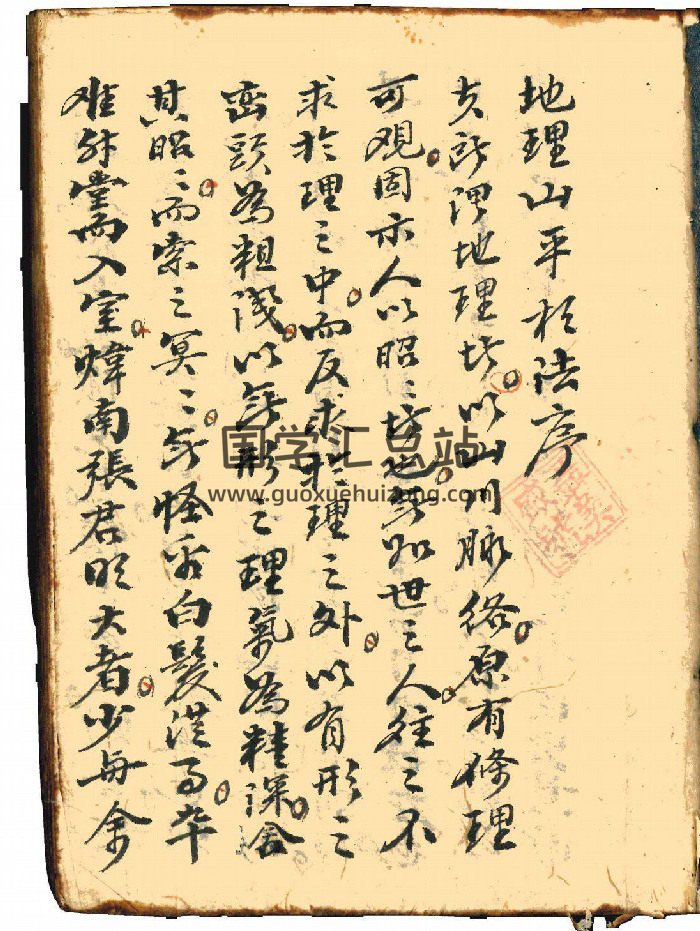 地理山平法序
夫所謂地理者以山川脉络原有條理
可观固示人以昭〻者也無如世之人往〻不
求於理之中而反求於理之外以有形之
峦頭為粗浅以無形之理氣為精深舍
其昭〻而索之冥〻無怪乎白髮從事卒
难升堂而入室煒南張君明大者少與余
国学汇总站
www.guoxuehuizong.com